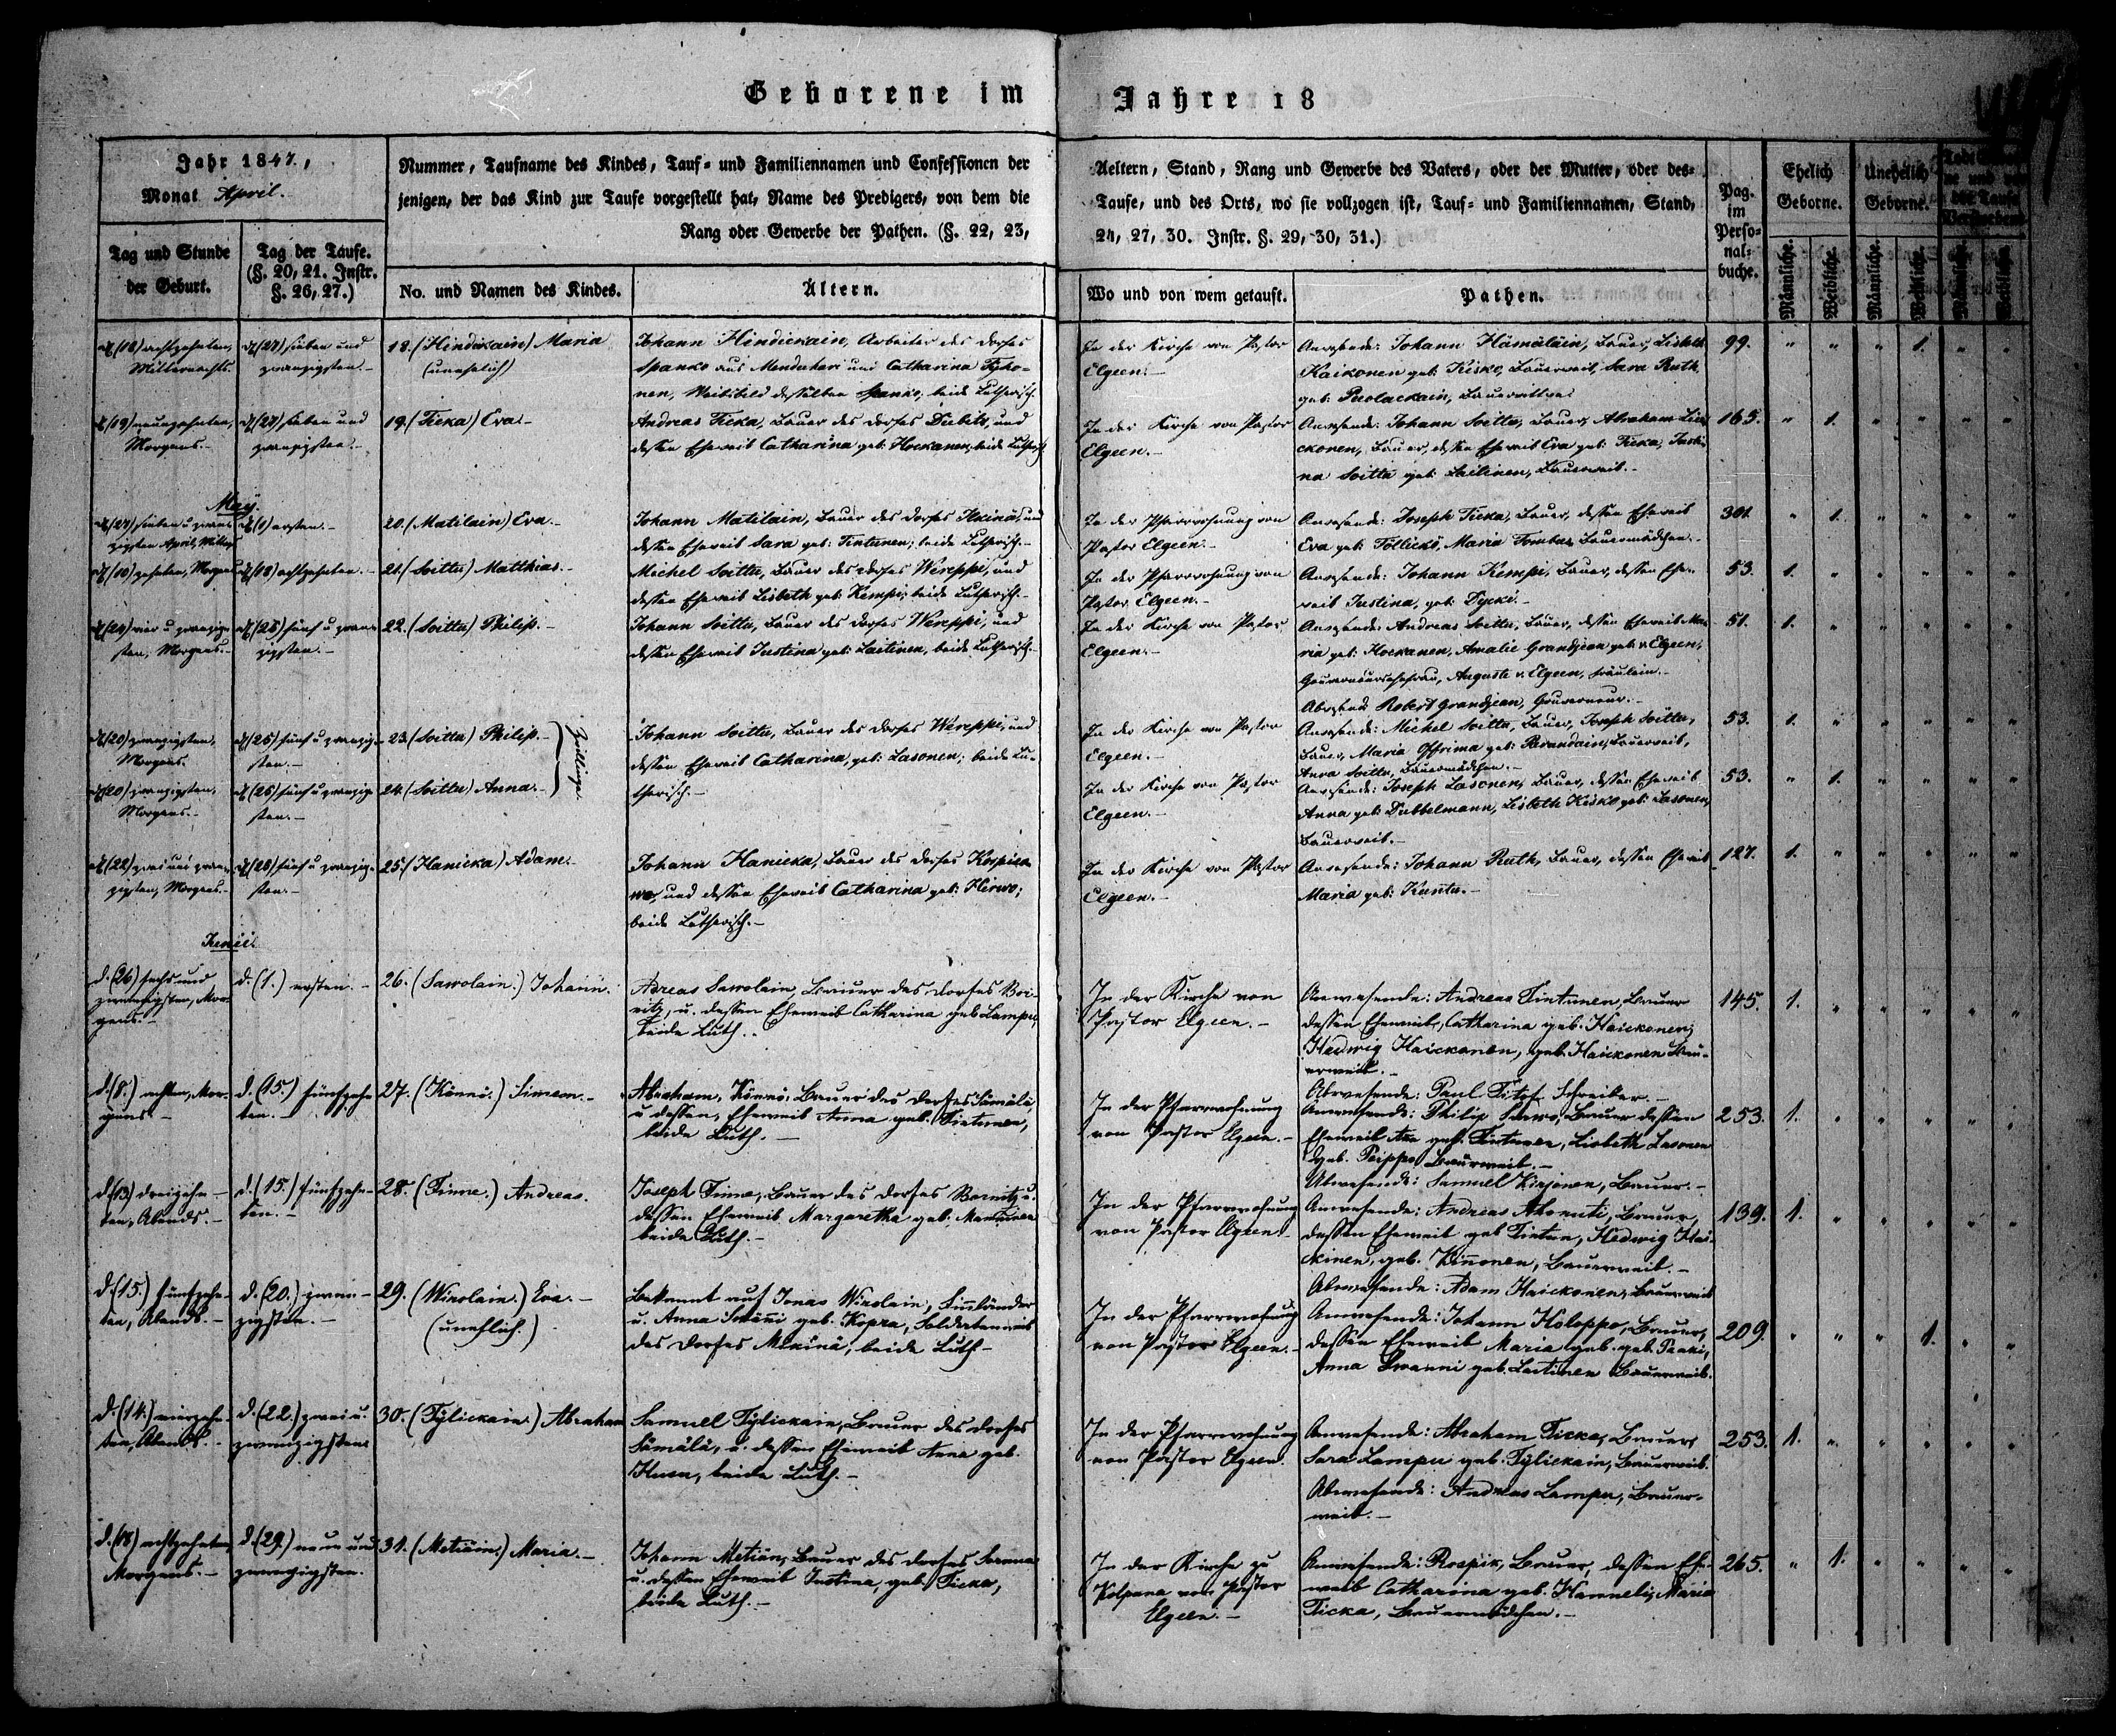 Geborene im Jahre 18
Jahr 1847.,
Monat April.
Nummer, Taufname des Kindes, Tauf- und Familiennamen und Confessionen der
jenigen, der das Kind zur Taufe vorgestellt hat, Name des Predigers, von dem die
Rang oder Gewerbe der Pathen. (§. 22, 23,
Aeltern, Stand, Rang und Gewerbe des Vaters, oder der Mutter, oder des-
Taufe, und des Orts, wo sie vollzogen ist, Tauf- und Familiennamen, Stand,
24, 27, 30. Instr. §. 29, 30, 31.)
Pag.
im
Perso-
nal-
buche.
Ehelich
Geborne.
Unehelich
Geborne.
Männliche.
Weibliche.
Männliche.
Weibliche.
Männliche.
Weibliche.
Tag und Stunde
der Geburt.
Tag der Taufe.
(§. 20, 21. Instr.
§. 26, 27.)
No. und Namen des Kindes.
Ältern.
Wo und von wem getauft.
Pathen.
(18) achtzehnten,
Mitternachts.
(27) sieben und
zwanzigsten.-
18. (Hindikain) Maria
(unehelich)
Johann Hindickain, Arbeiter des Dorfes
Spanko aus und Catharina Tyko-
nen, Weibsbild desselben Spanko, beide Lutherisch.
In der Kirche von Pastor
Elgeen.-
Anwesende: Johann Hämäläin, Bauer, Lisbeth
Kaikonen geb: Kisko, Bauerweib, Sara Ruth,
geb: Bauerwittwe.
99. " " " 1. " "
(19) neunzehnten,
Morgens.-
(27) sieben und
zwanzigsten.-
19. (Ticka) Eva.-
Andreas Ticka, Bauer des Dorfes Dubits, und
dessen Eheweib Catharina geb: Hockanen, beide Luthrsch.
In der Kirche von Pastor
Elgeen.-
Anwesende: Johann Soittu, Bauer, Abraham
ckonen, Bauer, dessen Eheweib Eva geb: Ticka, Justi-
na Soittu geb: Laitinen, Bauerweib.-
165. " 1. " " " "
May.
(27) sieben u zwan-
zigsten April, Mittags
(1) ersten.-
20. (Matilain) Eva.-
Johann Matilain, Bauer des Dorfes und
dessen Eheweib Sara geb: Tintunen; beide Lutherisch.-
In der Pfarrwohnung von
Pastor Elgeen.-
Anwesende: Joseph Ticka, Bauer, dessen Eheweib
Eva geb: Töllickö, Maria Bauermädchen.-
301. " 1. " " " "
(10) zehnten, Morgens
(18) achtzehnten.-
21. (Soittu) Matthias.-
Michel Soittu, Bauer des Dorfes Wereppi, und
dessen Eheweib Lisbeth geb: Kempi; beide Lutherisch.-
In der Pfarrwohnung von
Pastor Elgeen.-
Anwesende: Johann Kempi, Bauer, dessen Ehe-
weib Justina, geb:
53. 1. " " " " "
(24) vier u zwanzig-
sten, Morgens.-
(25) fünf u zwan-
zigsten.-
22. (Soittu) Philip.-
Johann Soittu, Bauer des Dorfes Wereppi, und
dessen Eheweib Justina geb: Laitinen, beide Lutherisch.-
In der Kirche von Pastor
Elgeen.-
Anwesende: Andreas Soittu, Bauer, dessen Eheweib Ma-
ria geb: Hockanen, Amalie Grandjean geb: v. Elgeen,
Gouverneursehefrau, Auguste v. Elgeen, Fräulein.-
Abwesend Robert Grandjean, Gouverneur.-
51. 1. " " " " "
(20) zwanzigsten,
Morgens.
(25) fünf u zwanzig-
sten.-
23. (Soittu) Philip.-
Zwillinge.
Johann Soittu, Bauer des Dorfes Wereppi, und
dessen Eheweib Catharina, geb: Lasonen; beide Lu-
therisch.-
In der Kirche von Pastor
Elgeen.-
Anwesende: Michel Soittu, Bauer, Joseph Soittu,
Bauer, Maria Offrima geb: Parandain, Bauerweib,
Anna Soittu, Bauermädchen.-
53. 1. " " " " "
(20) zwanzigsten,
Morgens.-
(25) fünf u zwanzig-
sten.-
24. (Soittu) Anna.-
In der Kirche von Pastor
Elgeen.-
Anwesende: Joseph Lasonen, Bauer, dessen Eheweib
Anna geb: Dubbelmann, Lisbeth Kisko geb: Lasonen,
Bauerweib.-
53. " 1. " " " "
(22) zwei und zwan-
zigsten, Morgens.-
(25) fünf u zwanzig-
sten.-
25. (Hanicka) Adam.-
Johann Hanicka, Bauer des Dorfes
und dessen Eheweib Catharina geb: Hirwo;
beide Lutherisch.-
In der Kirche von Pastor
Elgeen.-
Anwesende: Johann Ruth, Bauer, dessen Eheweib
Maria geb: Kuntu.-
127. 1. " " " " "
Junii.
d. (26) sechs und
zwanzigsten, Mor-
gens.-
d. (1.) ersten.-
26. (Sawolain.) Johann.
Adreas Sawolain, Bauer des Dorfes
u. dessen Eheweib Catharina geb. Lampu,
beide Luth.-
In der Kirche von
Pastor Elgeen.-
Anwesende: Andreas Tintunen, Bauer
dessen Eheweib, Catharina geb. Haickonen;
Hedwig Haickonen, geb. Haickonen Bau-
erweib.-
Abwesende: Paul Titof Schreiber.-
145. 1. " " " " "
d. (8.) achten, Mor-
gens.-
d. (15.) fünfzehn-
ten.-
27. (Könnö.) Simeon.-
Abraham Könnö, Bauer des Dorfes Sämälä,
u dessen, Eheweib Anna geb. Tintunen,
beide Luth.-
In der Pfarrwohnung
von Pastor Elgeen.-
Anwesende: Philip Bauer dessen
Eheweib geb. Tintunen, Lisbeth Lasonen
geb. Peippo Bauerweib.-
Abwesende: Samuel Kirjonen, Bauer.-
253. 1. " " " " "
d. (13) dreizehn-
ten, Abends.-
d. (15.) fünfzehn-
ten.-
28. (Tinne.) Andreas.
Joseph Tinne, Bauer des Dorfes u.
dessen Eheweib Margaretha geb.
beide Luth.-
In der Pfarrwohnung
von Pastor Elgeen.-
Anwesende: Andreas Bauer,
dessen Eheweib geb Tintun, Hedwig Hai-
ckinen, geb. Kinonen, Bauerweib.-
Abwesende: Adam Haickonen, Bauerweib
139. 1. " " " " "
d. (15.) fünfzehn-
ten, Abends.-
d. (20.) zwan-
zigsten.-
29. (Wirolain.) Eva.-
(unehlich.)
Bekannt auf Jonas Wirolain, Finnländer
u. Anna geb. Kopra, Soldatenweib
des Dorfes Mäkinä, beide Luth-
In der Pfarrwohnung
von Pastor Elgeen.-
Anwesende: Johann Holoppo, Bauer,
dessen Eheweib Maria geb. geb. Paaki,
Anna geb. Laitinen Bauerweib.
209. " " " 1. " "
d. (14.) vierzehn-
ten, Abends.-
d. (22.) zwei u.
zwanzigsten
30. (Tylickain.) Abraham
Samuel Tylickain, Bauer des Dorfes
Sämälä, u. dessen Eheweib Anna geb.
beide Luth.-
In der Pfarrwohnung
von Pastor Elgeen.
Anwesende: Abraham Ticka, Bauer,
Sara Lampu geb. Tylickain, Bauerweib.
Abwesende: Andreas Lampu, Bauer-
weib.-
253. 1. " " " " "
d. (18) achtzehnten,
Morgens.-
d. (29.) neun und
zwanzigsten.
31. (Metiäin.) Maria.-
Johann Metiäin, Bauer des Dorfes
u. dessen Eheweib Justina, geb. Ticka,
beide Luth.-
In der Kirche zu
Kolpana von Pastor
Elgeen.-
Anwesende: Rospik, Bauer, dessen Ehe-
weib Catharina geb. Hannelis, Maria
Ticka, Bauermädchen.-
265. " 1. " " " "